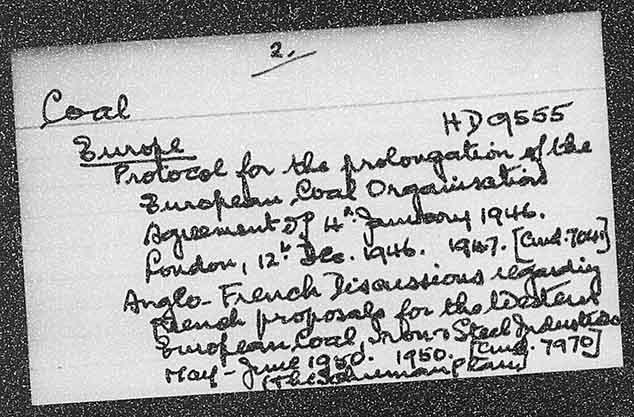 2.
Coal
HD9555
Europe
Protocol for the prolongation of the
European Coal Organisation
Agreement of 4th January 1946.
London, 12th Dec. 1946. 1947. [Cmd. 7041]
Anglo-French Discussions regarding
French proposals for the Western
European Coal, Iron & Steel Industries
May-June 1950. 1950. [Cmd. 7970]
(The Schuman Plan)